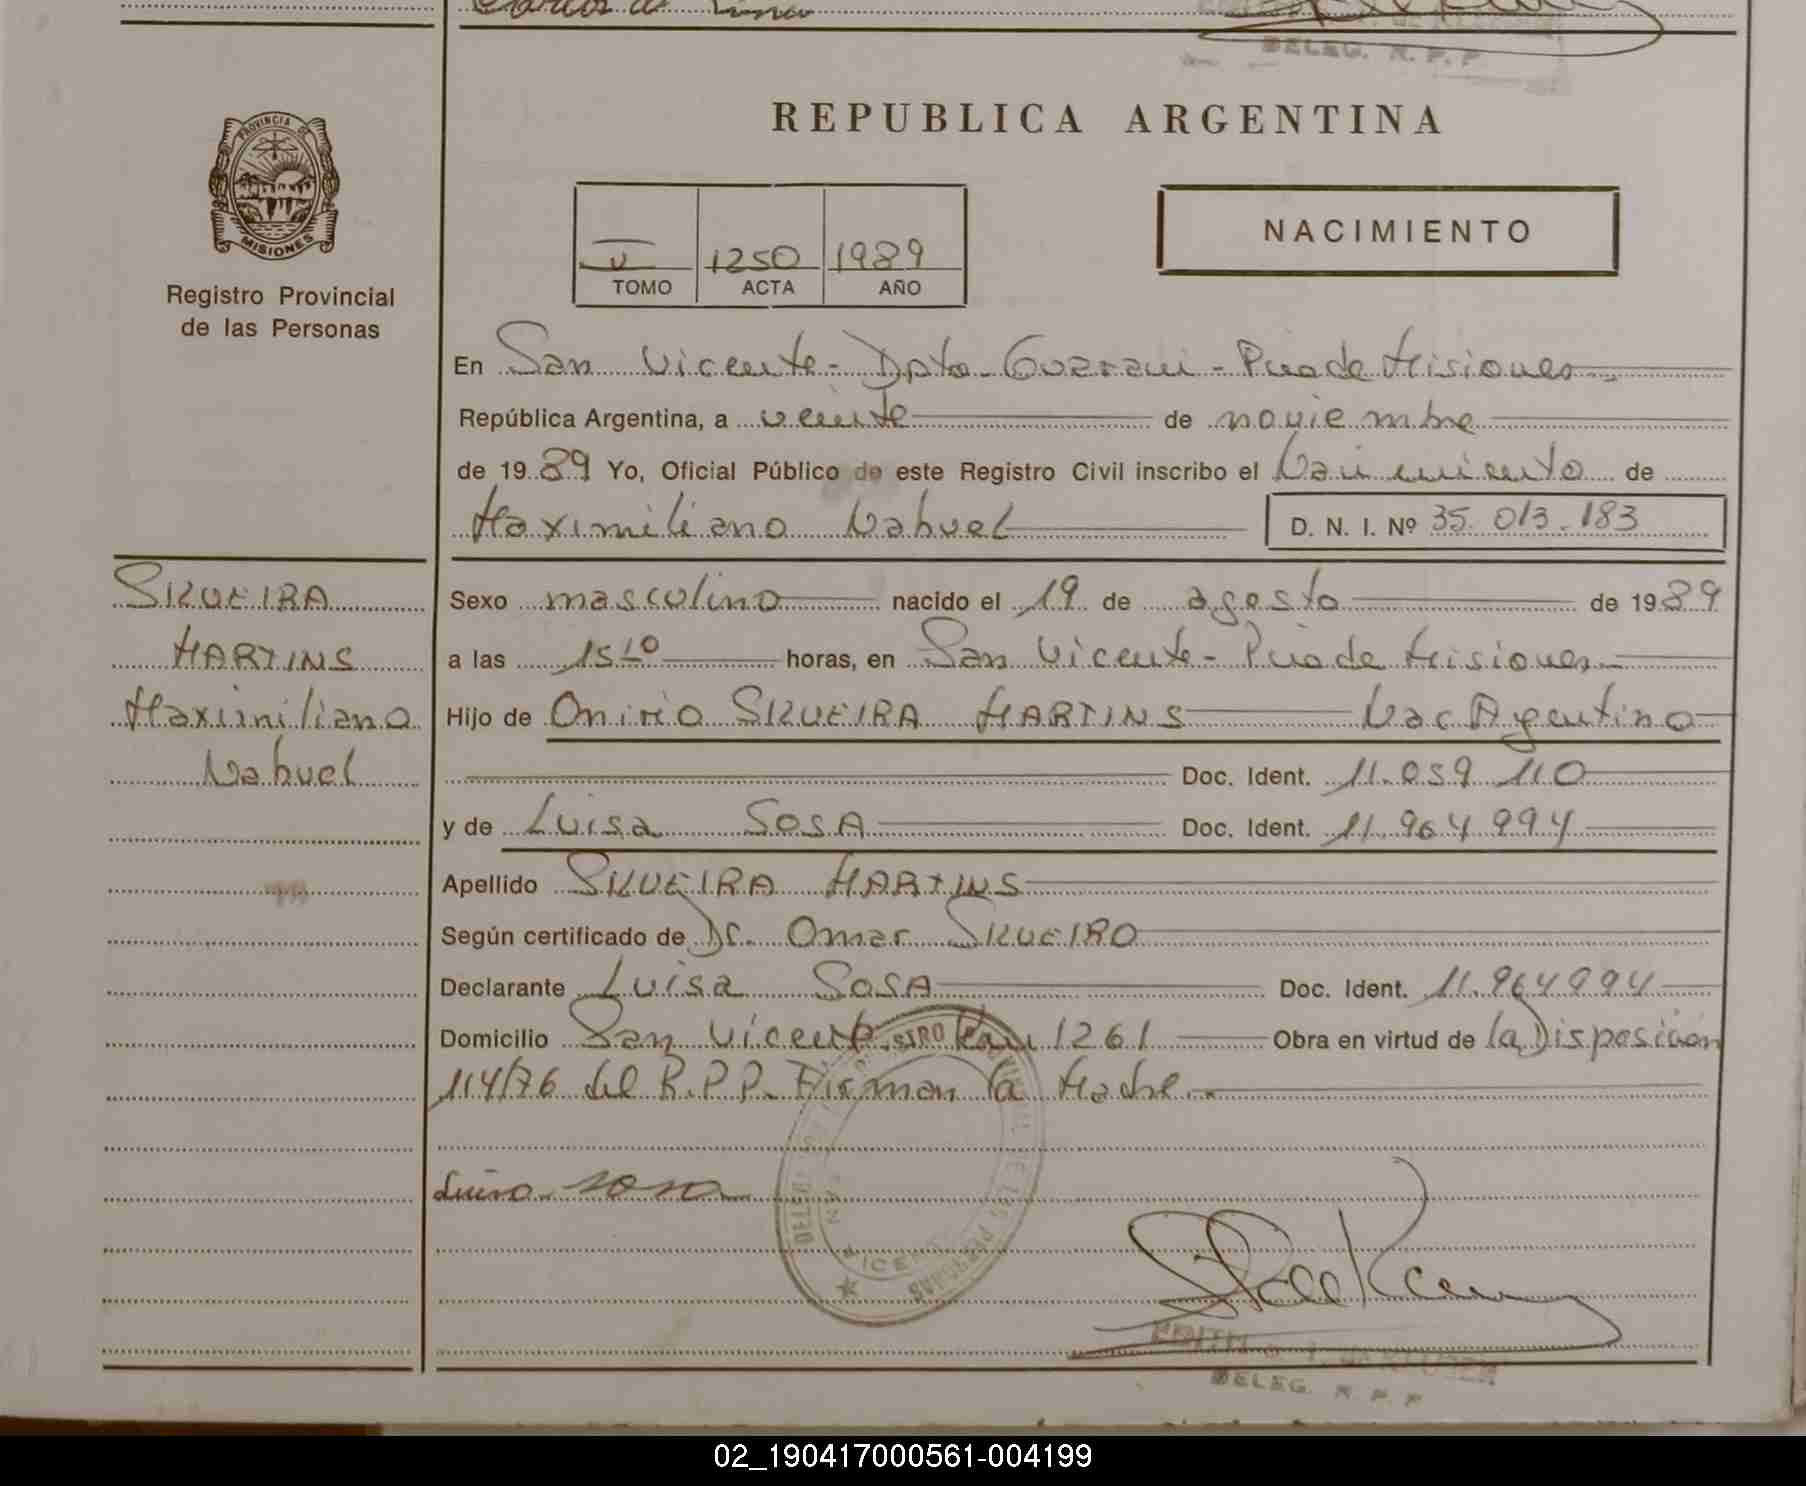 DELEG. R. P. P.
PROVINCIA DE
MISIONES
Registro Provincial
de las Personas
REPUBLICA ARGENTINA
V 1250 1989
TOMO ACTA AÑO
NACIMIENTO
En San Vicente - Dpto. Guarani - Pcia de Misiones
República Argentina, a veinte de noviembre
de 19 89 Yo, Oficial Público de este Registro Civil inscribo el Nacimiento de
Maximiliano Nahuel D. N. I. Nº 35.013.183
SILVEIRA
MARTINS
Maximiliano
Nahuel
Sexo masculino nacido el 19 de agosto de 19 89
a las 15 10 horas, en San Vicente - Pcia de Misiones
Hijo de Onirio SILVEIRA MARTINS Nac Argentino
Doc. Ident. 11.059 110
y de Luisa SOSA Doc. Ident. 11.964 994
Apellido SILVEIRA MARTINS
Según certificado de Dr. Omar SILVEIRO
Declarante Luisa SOSA Doc. Ident. 11.964994
Domicilio San Vicente 1261 Obra en virtud de la Disposición
114/76 del R.P.P. Firman la Madre.
Luisa Sosa
DELEG. R. P. P
02_190417000561-004199